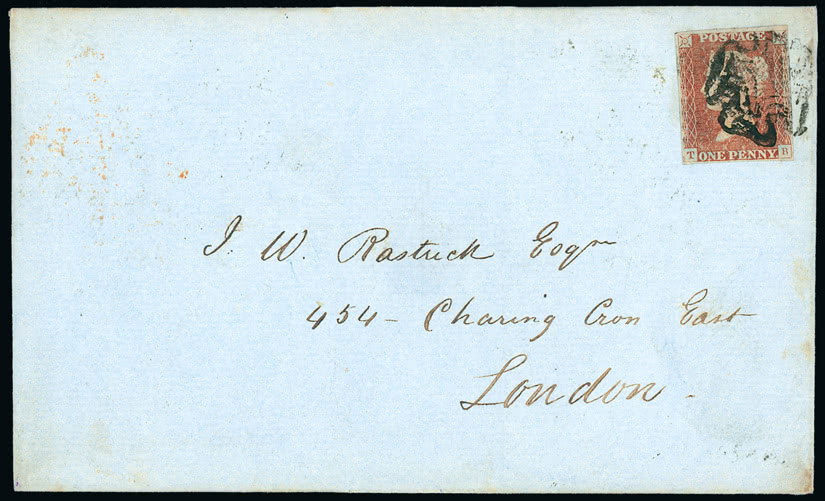 POSTAGE
ONE PENNY
T B
J. W. Rastrick Esqre
454 - Charing Cron East
London -